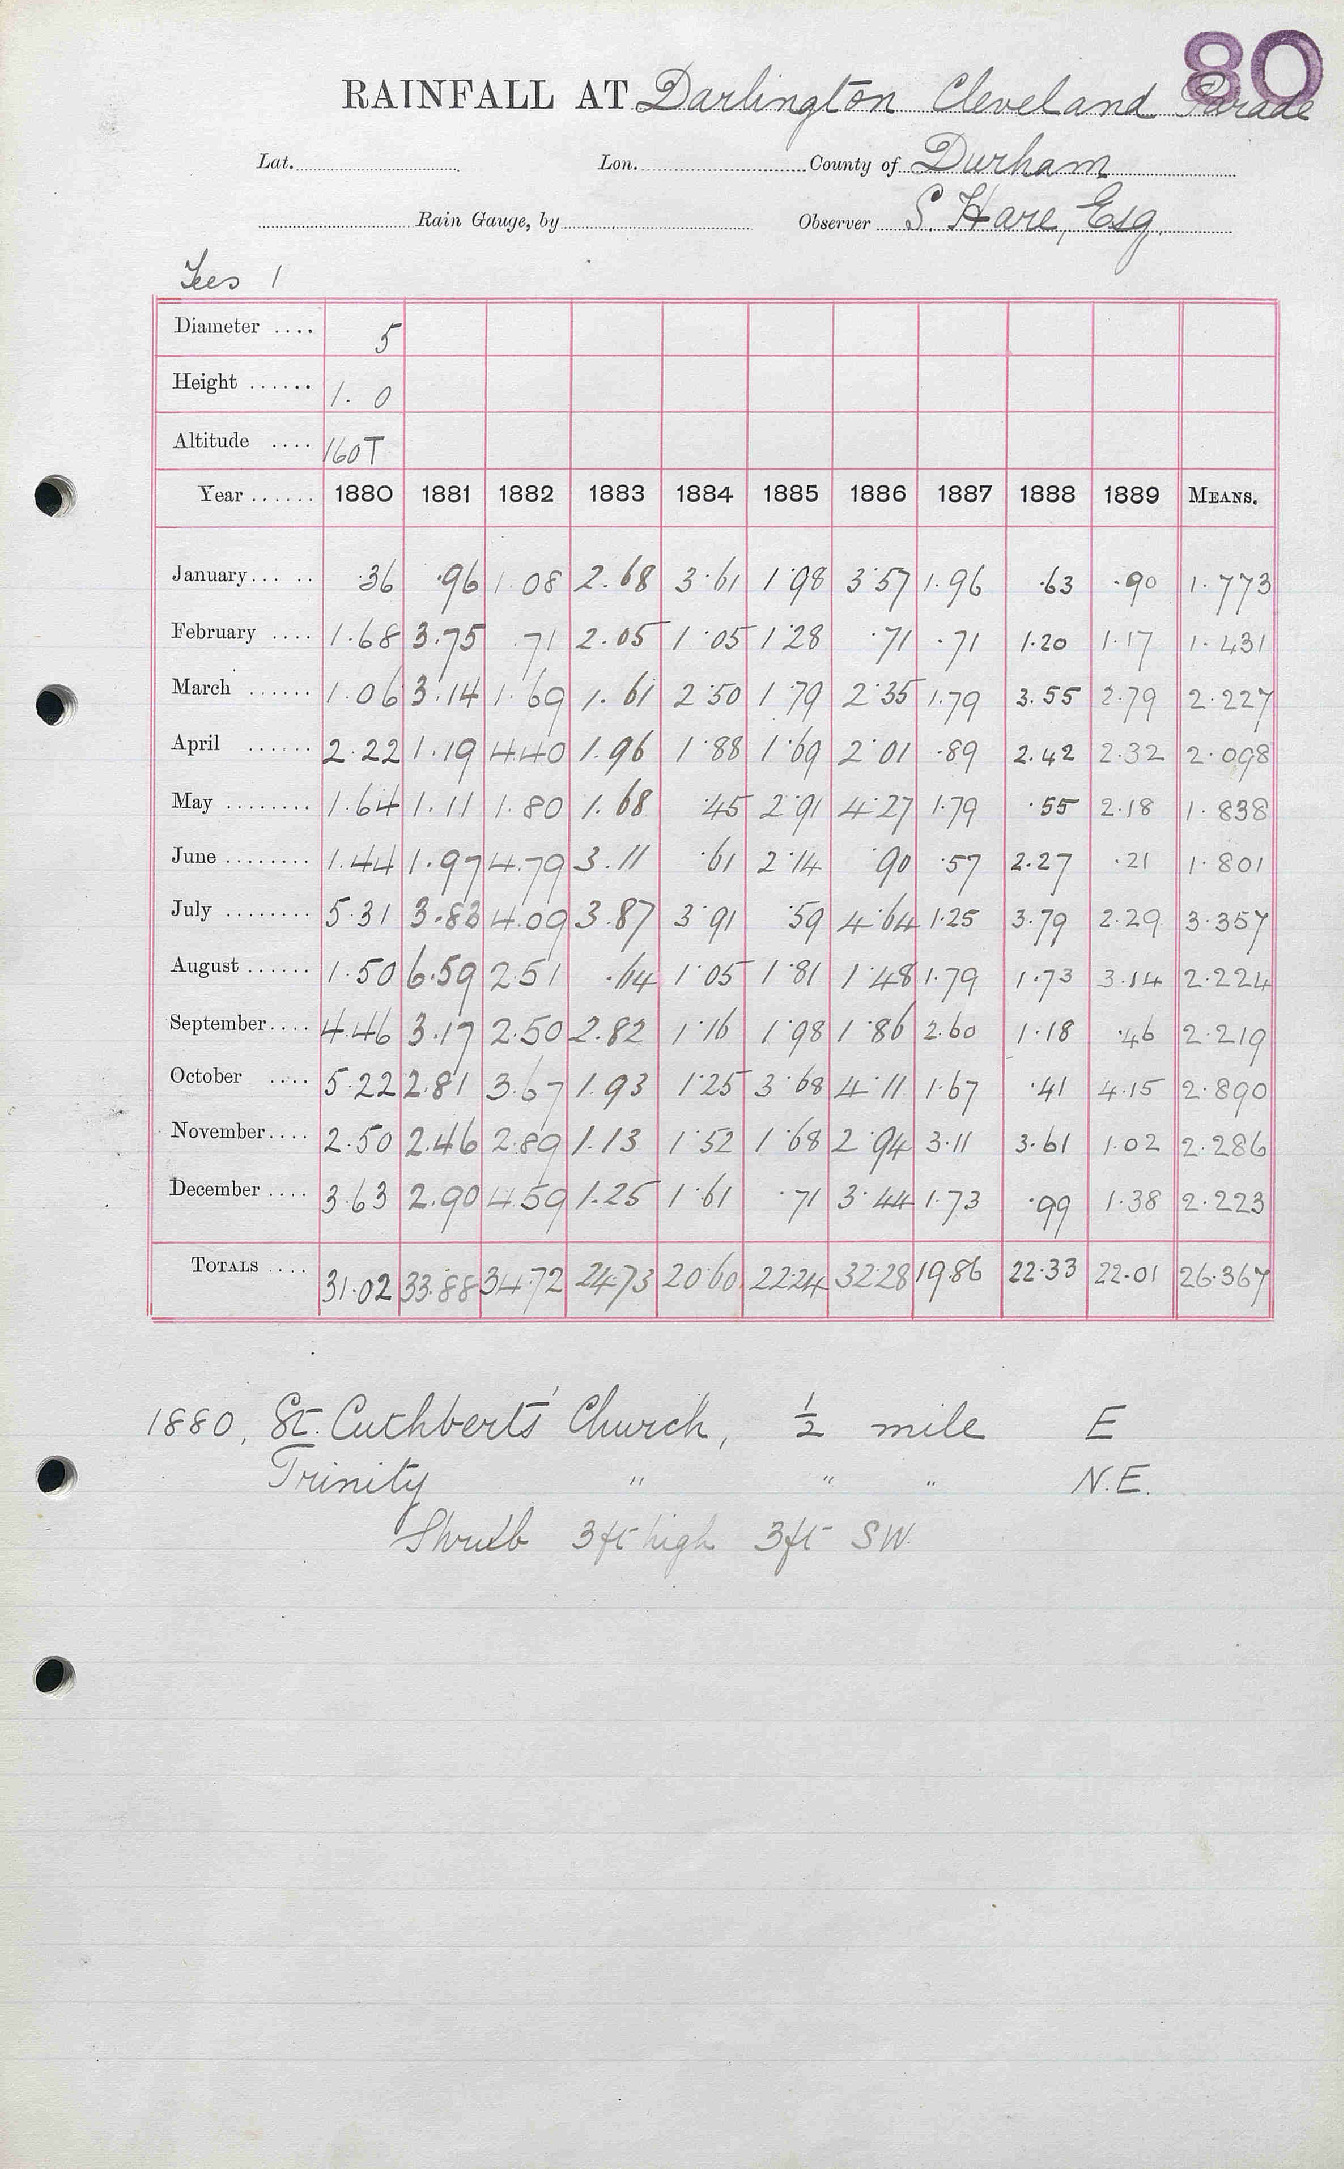 80
RAINFALL AT Darlington Cleveland Parade
Lat. Lon. County of Durham
Rain Gauge, by Observer S. Hare, Esq.
Tees 1
Diameter .... 5
Height ...... 1. 0
Altitude .... 160T
Year ...... 1880 1881 1882 1883 1884 1885 1886 1887 1888 1889 MEANS.
January... .. .36 .96 1.08 2.68 3.61 1.98 3.57 1.96 .63 .90 1.773
February .... 1.68 3.75 .71 2.05 1.05 1.28 .71 .71 1.20 1.17 1.431
March ...... 1.06 3.14 1.69 1.61 2.50 1.79 2.35 1.79 3.55 2.79 2.227
April ...... 2.22 1.19 4.40 1.96 1.88 1.69 2.01 .89 2.42 2.32 2.098
May ........ 1.64 1.11 1.80 1.68 .45 2.91 4.27 1.79 .55 2.18 1.838
June ........ 1.44 1.97 4.79 3.11 .61 2.14 .90 .57 2.27 .21 1.801
July ........ 5.31 3.83 4.09 3.87 3.91 .59 4.64 1.25 3.79 2.29 3.357
August ...... 1.50 6.59 2.51 .64 1.05 1.81 1.48 1.79 1.73 3.14 2.224
September.... 4.46 3.17 2.50 2.82 1.16 1.98 1.86 2.60 1.18 .46 2.219
October .... 5.22 2.81 3.67 1.93 1.25 3.68 4.11 1.67 .41 4.15 2.890
November.... 2.50 2.46 2.89 1.13 1.52 1.68 2.94 3.11 3.61 1.02 2.286
December .... 3.63 2.90 4.59 1.25 1.61 .71 3.44 1.73 .99 1.38 2.223
TOTALS .... 31.02 33.88 34.72 24.73 20.60 22.24 32.28 19.86 22.33 22.01 26.367
1880, St. Cuthbert's Church, ½ mile E
Trinity " " " N.E.
Shrub 3ft high 3ft SW